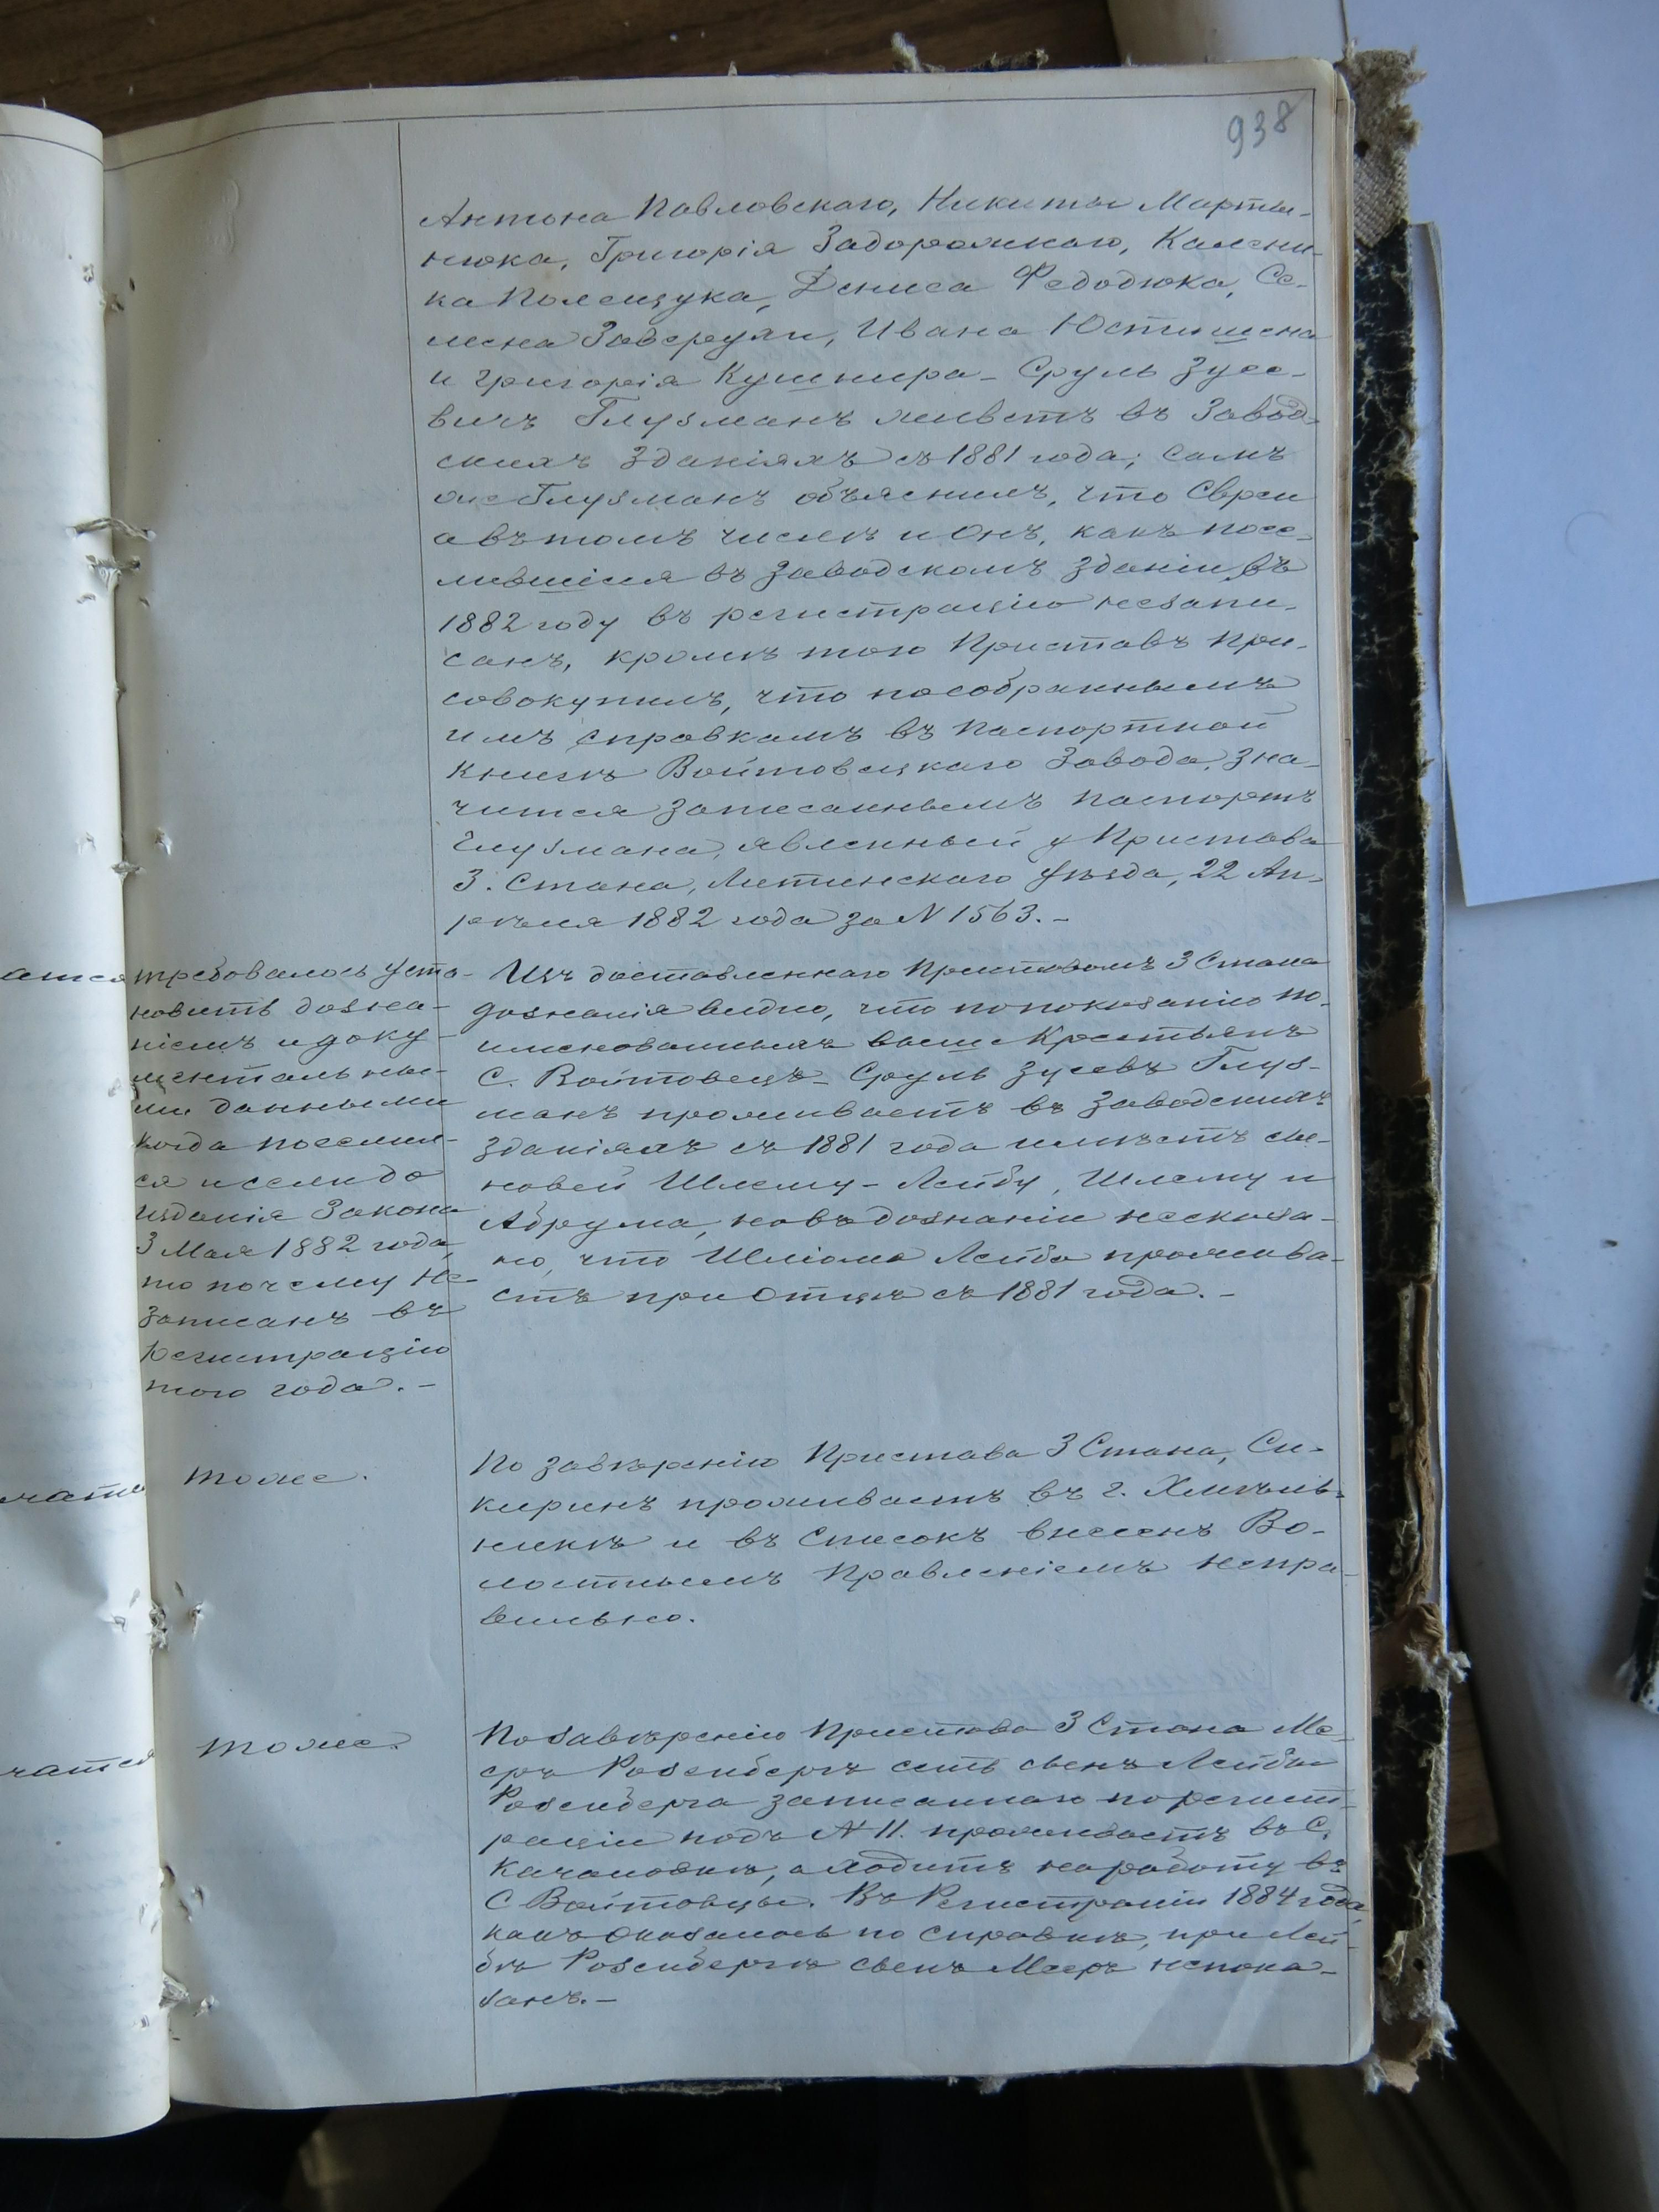 938
Антона Павловскаго, Никиты Марти-
нюка, Григорія Задорожнаго, Калени-
ка Полещука, Дениса Федодюка, Се-
мена Заверухи, Ивана Юстишена
и Григорія Кушнира – Сруль Зусе-
вичъ Глузманъ живетъ въ Завод-
скихъ Зданіяхъ съ 1881 года; Самъ
же Глузманъ объяснилъ, что Евреи
а въ томъ числѣ и Онъ, какъ посе-
лившіися въ Заводскомъ Зданіи въ
1882 году въ регистрацію незапи-
санъ, кромѣ того Приставъ При-
совокупилъ, что пособраннымъ
имъ справкамъ въ Паспортной
Книгѣ Войтовецкаго Завода, зна-
чится Записаннымъ паспортъ
Глузмана, явленный у Пристава
3. Стана, Литинскаго Уѣзда, 22 Ап-
рѣля 1882 года за N 1563. –
требовалось уста-
новить дозна-
ніемъ и доку-
ментальны-
ми данными
когда поселил-
ся и если до
изданія Закона
3 Мая 1882 года,
то почему не-
записанъ въ
регистрацію
того года. –
Изъ доставленнаго Приставомъ 3 Стана
дознанія видно, что по показанію по-
именованныхъ выше Крестьянъ
С. Войтовецъ – Сруль Зусевъ Глуз-
манъ проживаетъ въ Заводскихъ
Зданіяхъ съ 1881 года имѣетъ сы-
новей Шлему-Лейбу, Шлему и
Абрума, но въ дознаніи несказа-
но, что Шліома Лейба прожива-
етъ при Отцѣ съ 1881 года. –
тоже.
По завѣренію Пристава 3 Стана, Си-
киринъ проживаетъ въ г. Хмѣль-
никѣ и въ Списокъ внесенъ Во-
лостнымъ Правленіемъ непра-
вильно.
тоже.
По завѣренію Пристава 3 Стана Ме-
еръ Розенбергъ есть сынъ Лейбы
Розенберга записаннаго по регист-
раціи подъ N 11. проживаетъ въ С.
Качановкѣ, а ходитъ на работу въ
С Войтовцы. Въ Регистраціи 1884 года,
какъ Оказалось по Справкѣ, при Лей-
бѣ Розенбергѣ сынъ Мееръ непока-
занъ. –